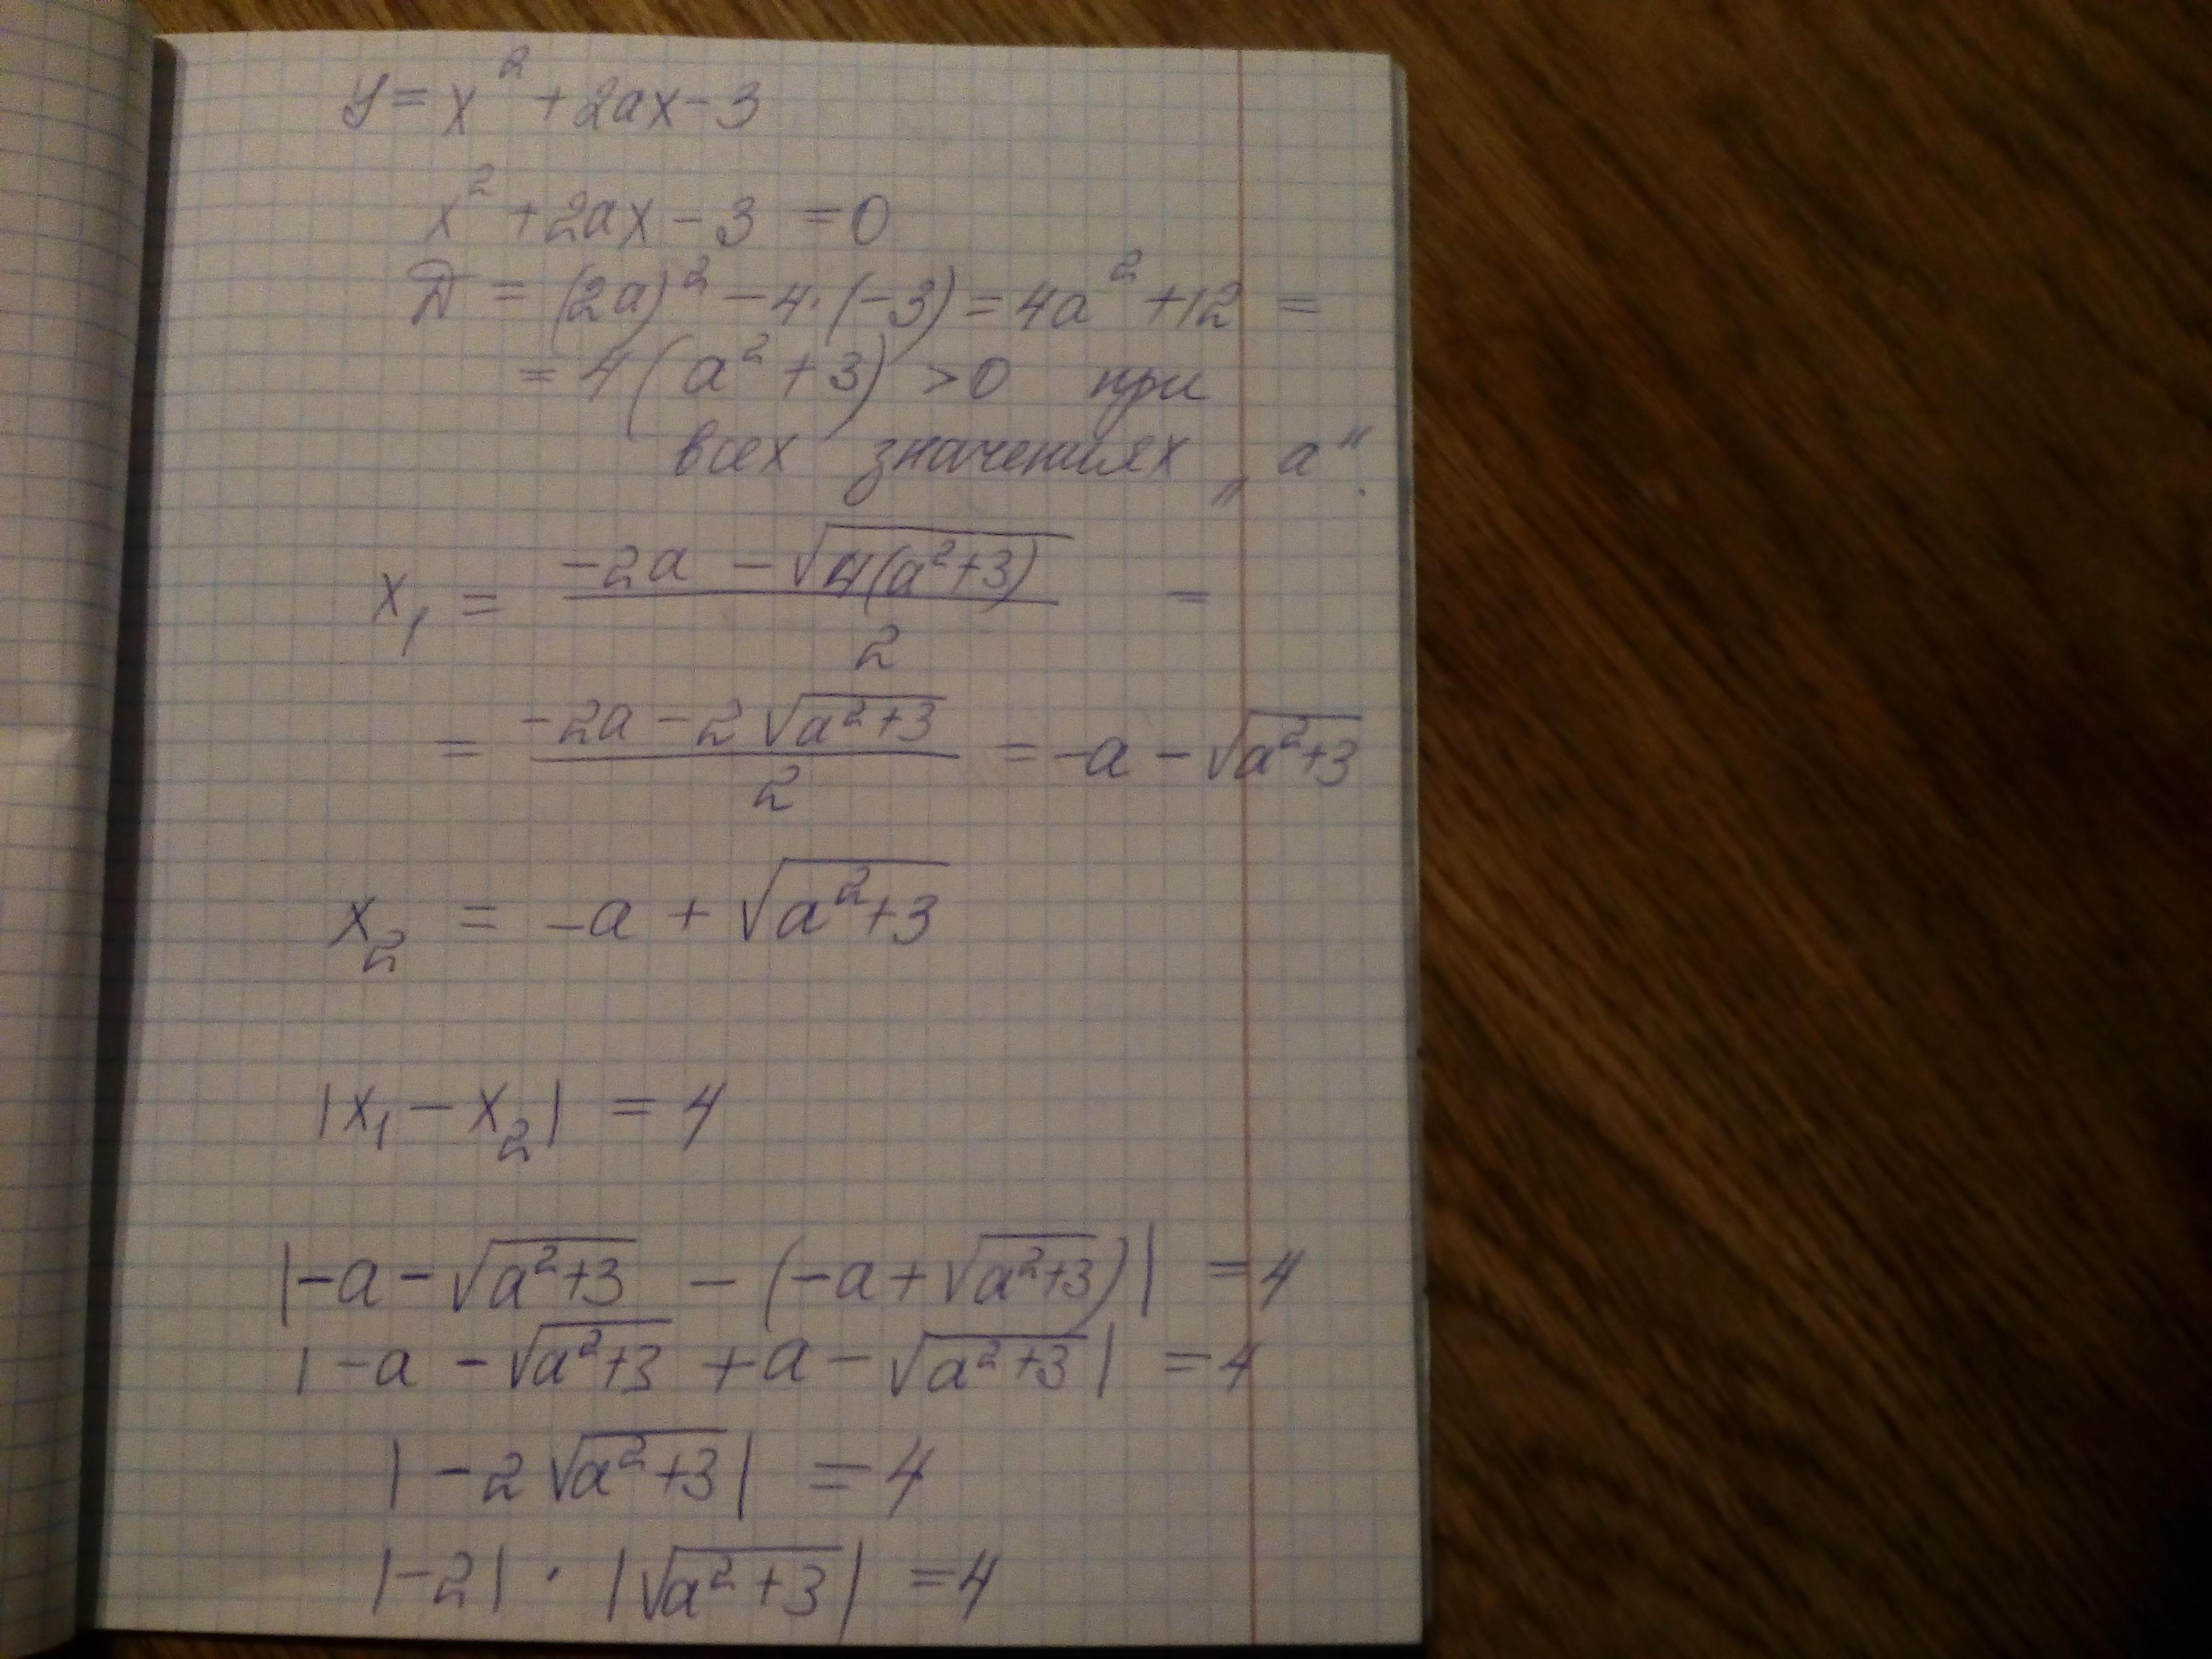 y = x² + 2ax - 3
x² + 2ax - 3 = 0
D = (2a)² - 4·(-3) = 4a² + 12 =
= 4(a² + 3) > 0 при
всех значениях „a".
x₁ = (-2a - √(4(a²+3)))/2 =
= (-2a - 2√(a²+3))/2 = -a - √(a²+3)
x₂ = -a + √(a²+3)
|x₁ - x₂| = 4
|-a - √(a²+3) - (-a + √(a²+3))| = 4
|-a - √(a²+3) + a - √(a²+3)| = 4
|-2√(a²+3)| = 4
|-2| · |√(a²+3)| = 4